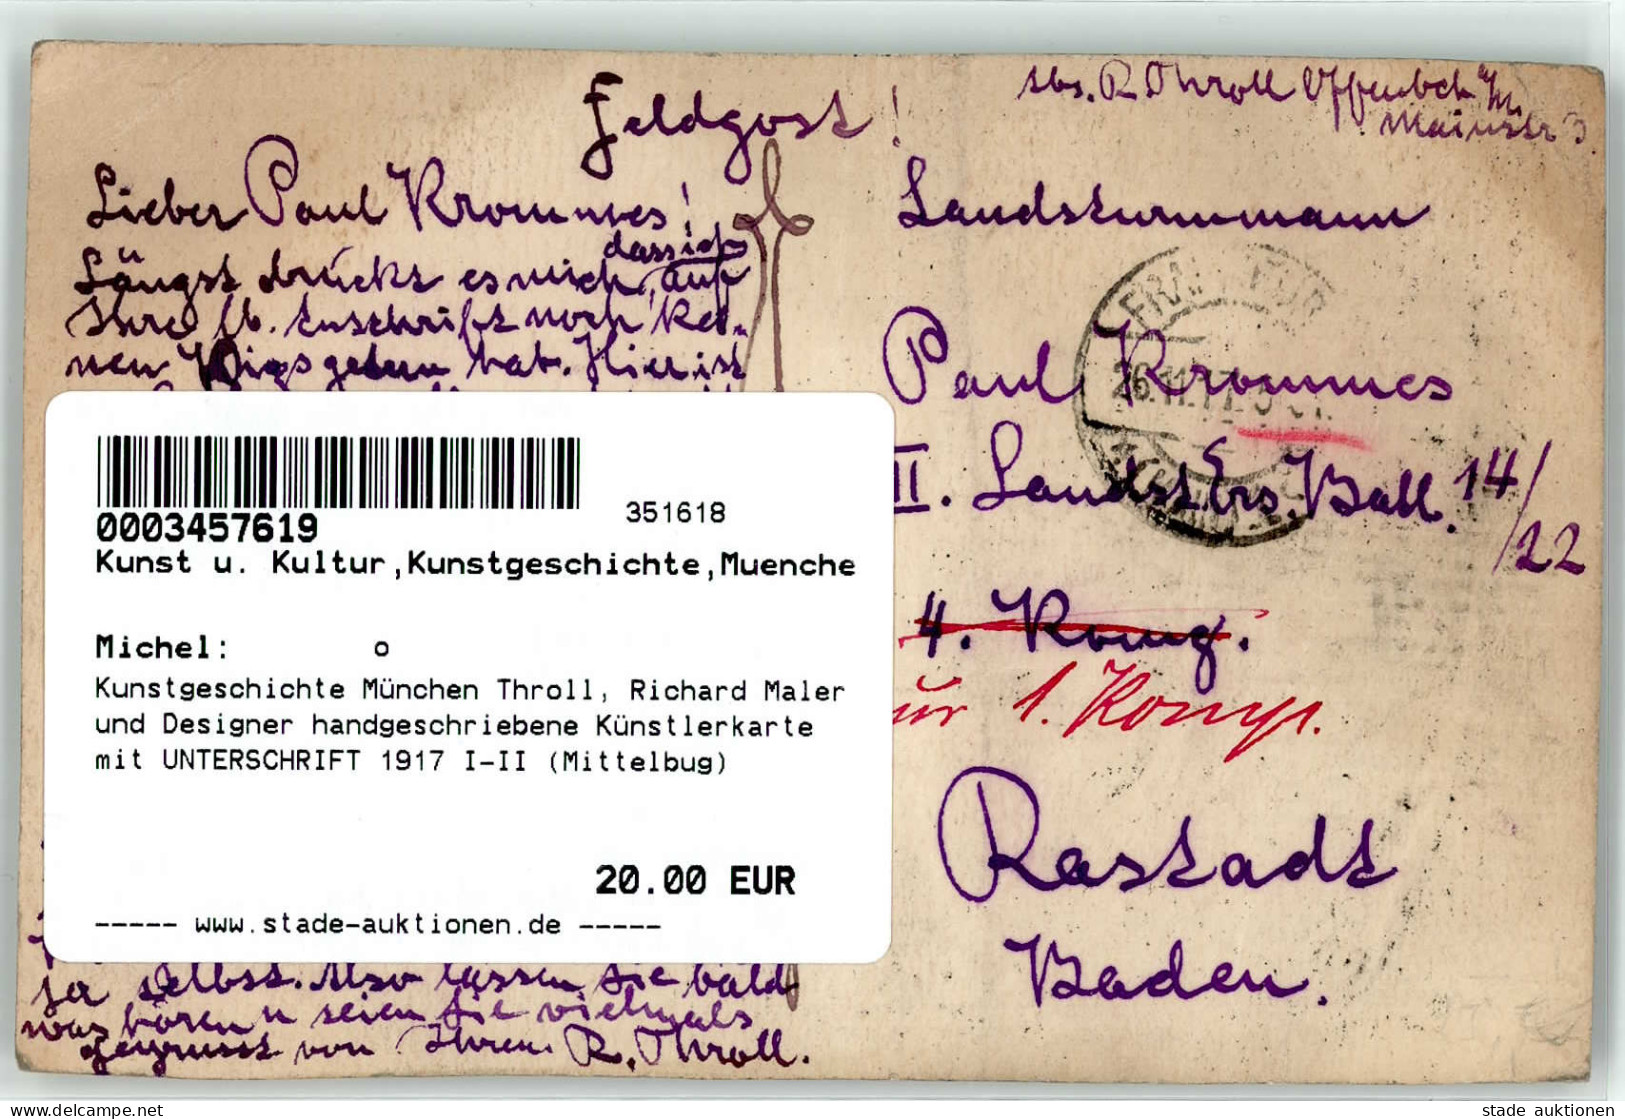 Feldpost!
Abs. R. Throll Offenbch a/M.
Mainstr 3.
Lieber Paul Krommes!
dass ich
Längst drückt es mich, auf
Ihre lb. Zuschrift noch kei-
nen gegeben hab. Hier ist
Landsturmmann
FRANKFURT
26.11.17.
Paul Krommes
II. Landst Ers. Batl. 14/22
4. Komp.
zur 1. Komp.
Rastadt
Baden.
0003457619
351618
Kunst u. Kultur,Kunstgeschichte,Muenche
Michel: o
Kunstgeschichte München Throll, Richard Maler
und Designer handgeschriebene Künstlerkarte
mit UNTERSCHRIFT 1917 I-II (Mittelbug)
20.00 EUR
----- www.stade-auktionen.de -----
ja selbst. Also lassen Sie bald
was hören u seien Sie vielmals
gegrüsst von Ihrem R. Throll.
www.delcampe.net
stade auktionen